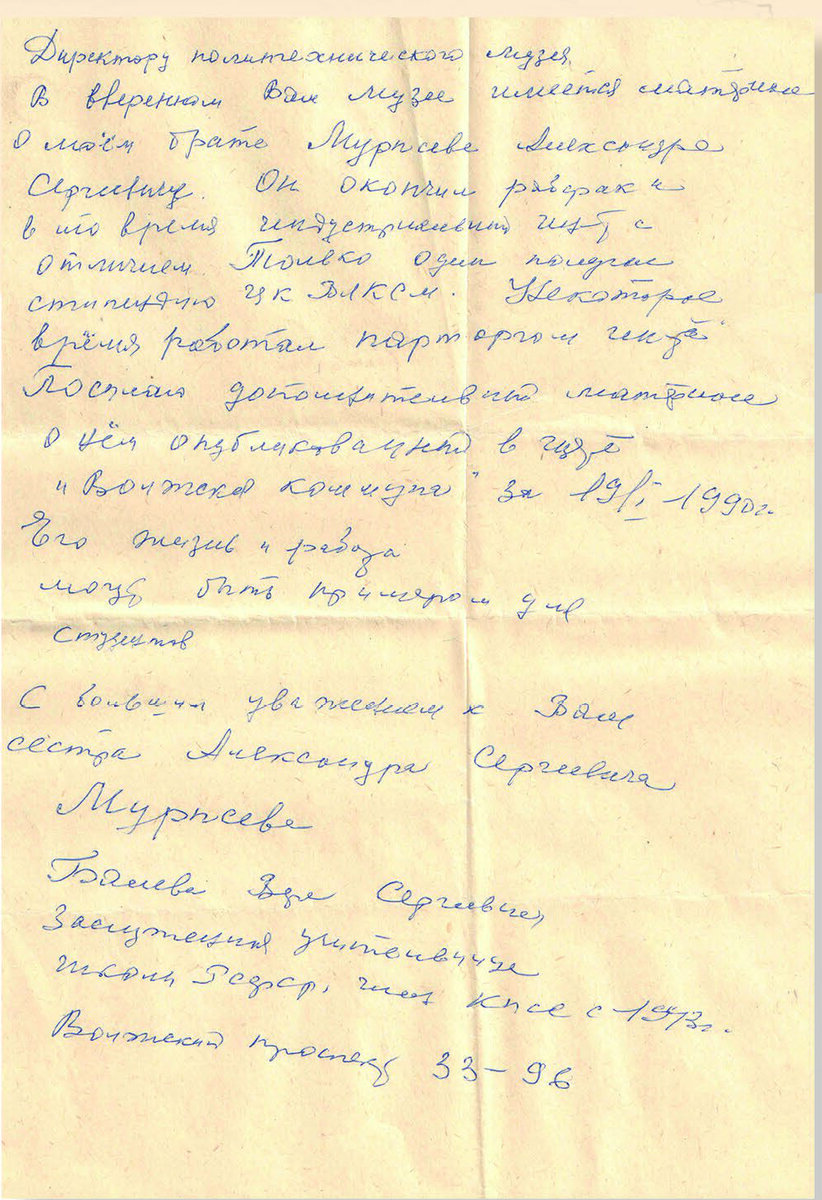 Директору политехнического музея
В вверенном Вам музее имеется материал
о моём брате Мурысеве Александре
Сергеевичу. Он окончил рабфак и
в то время индустриальный инт с
отличием. Только один получал
стипендию ЦК ВЛКСМ. Некоторое
время работал парторгом
Посылаю дополнительный материал
о нём опубликованный в
"Волжская коммуна" за 19/I 1990г.
Его жизнь и работа
могут быть примером для
студентов
С большим уважением к Вам
сестра Александра Сергеевича
Мурысева
Вера Сергеевна
Заслуженная учительница
школы РСФСР, член КПСС с 1943г.
Волжский проспект 33-96